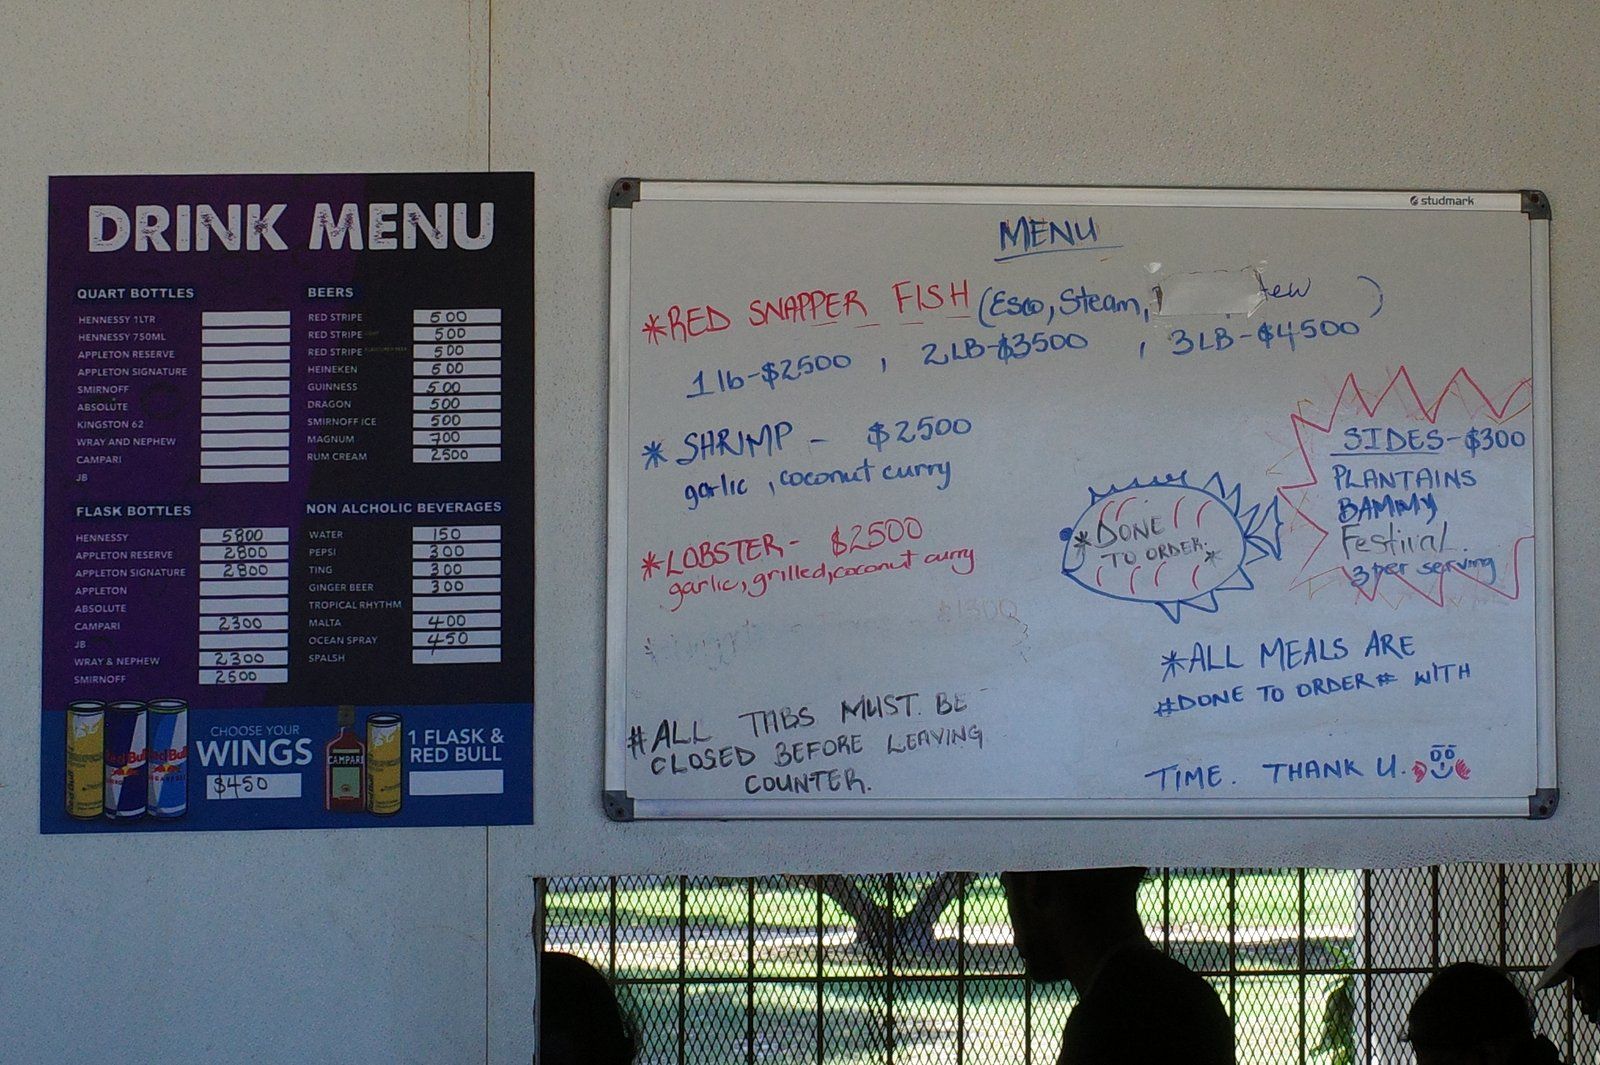 DRINK MENU
QUART BOTTLES
HENNESSY 1LTR
HENNESSY 750ML
APPLETON RESERVE
APPLETON SIGNATURE
SMIRNOFF
ABSOLUTE
KINGSTON 62
WRAY AND NEPHEW
CAMPARI
JB
BEERS
RED STRIPE 500
RED STRIPE 500
RED STRIPE 500
HEINEKEN 500
GUINNESS 500
DRAGON 500
SMIRNOFF ICE 500
MAGNUM 700
RUM CREAM 2500
FLASK BOTTLES
HENNESSY 5800
APPLETON RESERVE 2800
APPLETON SIGNATURE 2800
APPLETON
ABSOLUTE
CAMPARI 2300
JB
WRAY & NEPHEW 2300
SMIRNOFF 2500
NON ALCHOLIC BEVERAGES
WATER 150
PEPSI 300
TING 300
GINGER BEER 300
TROPICAL RHYTHM
MALTA 400
OCEAN SPRAY 450
SPALSH
CHOOSE YOUR
WINGS
$450
CAMPARI
1 FLASK &
RED BULL
studmark
MENU
*RED SNAPPER FISH (Esco, Steam, )
1 lb-$2500 , 2LB-$3500 , 3LB-$4500
* SHRIMP - $2500
garlic , coconut curry
*LOBSTER- $2500
garlic, grilled, coconut curry
$1300
*DONE
TO ORDER.*
SIDES-$300
PLANTAINS
BAMMY
Festival.
3 per serving
*ALL MEALS ARE
#DONE TO ORDER# WITH
TIME. THANK U.
#ALL TABS MUST BE
CLOSED BEFORE LEAVING
COUNTER.